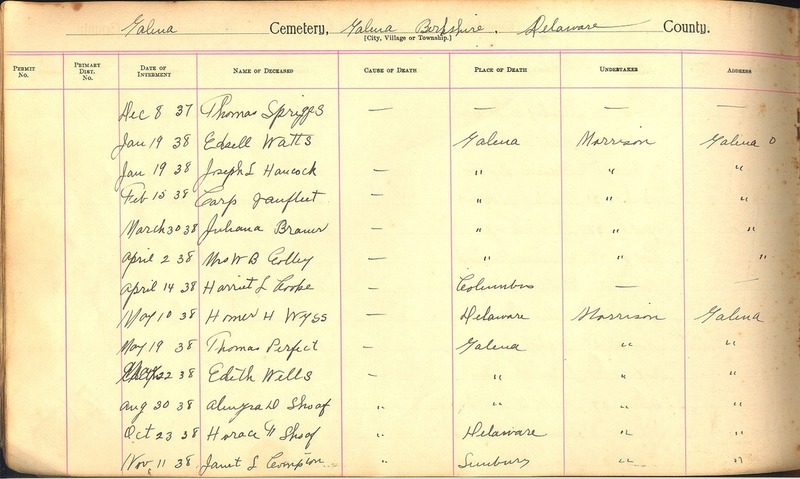 Galena Cemetery, Galena Berkshire. Delaware County.
[City, Village or Township.]
PERMIT No. PRIMARY DIST. No. DATE OF INTERMENT NAME OF DECEASED CAUSE OF DEATH PLACE OF DEATH UNDERTAKER ADDRESS
Dec 8 37 Thomas Spriggs — — — —
Jan 19 38 Edsell Watts Galena Morrison Galena O
Jan 19 38 Joseph L Hancock — " " "
Feb 15 38 — " " "
March 30 38 Juliana Brauer — " " "
April 2 38 Mrs W B Golley — " " "
April 14 38 Harriet L Cooke — Columbus — —
May 10 38 Homer H Wyss — Delaware Morrison Galena
May 19 38 Thomas Perfect — Galena " "
22 38 Edith Wells — " " "
Aug 30 38 Almyra D Shoaf " " " "
Oct 23 38 Horace Shoaf " Delaware " "
Nov 11 38 Janet L Compton " Sunbury " "